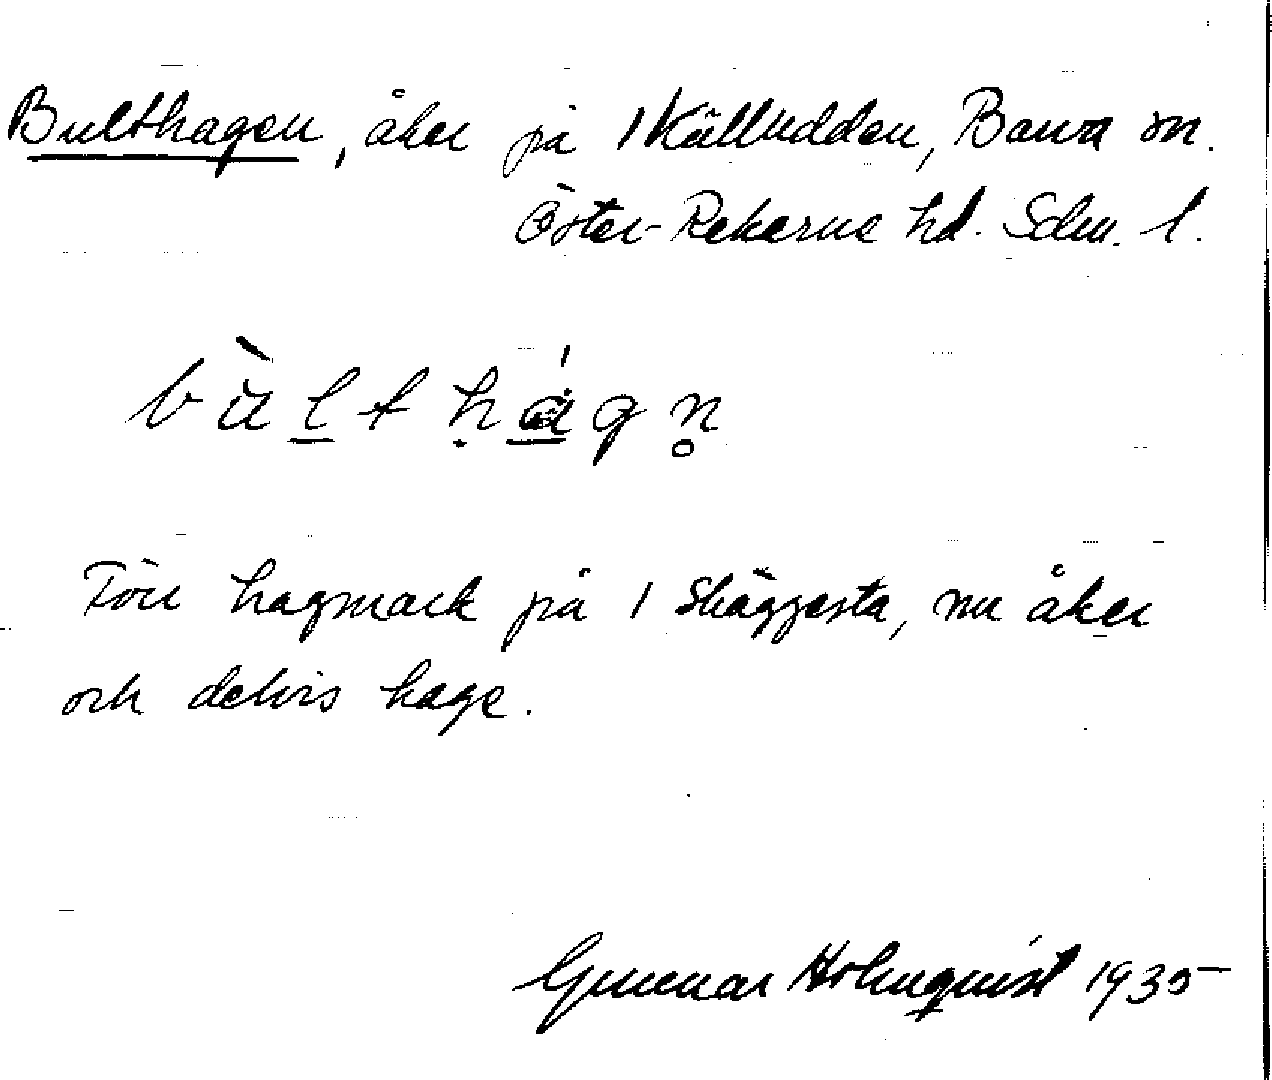 Bulthagen, åker på 1 Källudden, Barva sn.
Öster-Rekarne hd. Sdm. l.
bùlthágn̥
Torr hagmark på 1 Skäggesta, nu åker
och delvis hage.
Gunnar Holmquist 1935